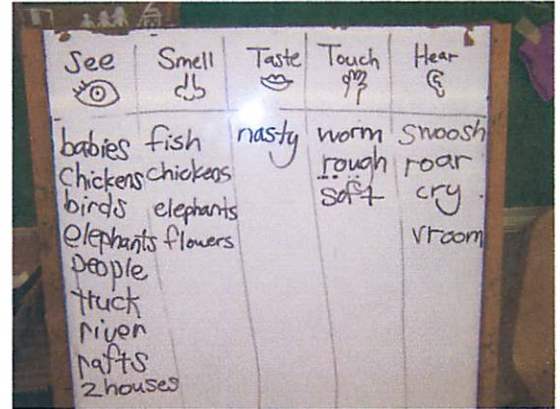 See Smell Taste Touch Hear
babies fish nasty worm swoosh
chickens chickens rough roar
birds elephants soft cry
elephants flowers vroom
people
truck
river
rafts
2 houses